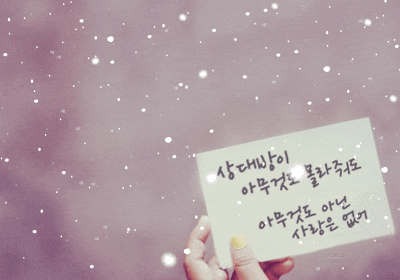 상대방이
아무것도 몰라줘도
아무것도 아닌
사랑은 없어